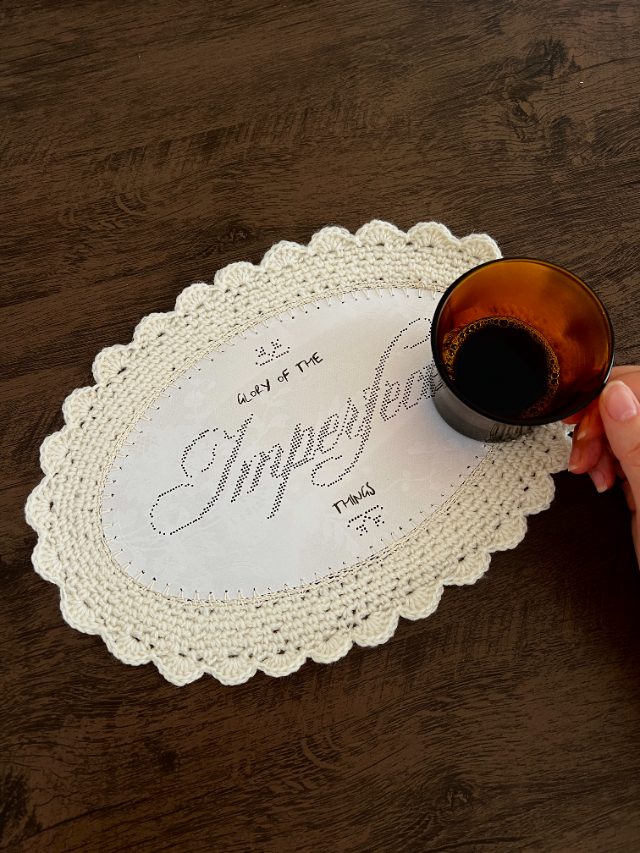 GLORY OF THE
Imperfect
THINGS